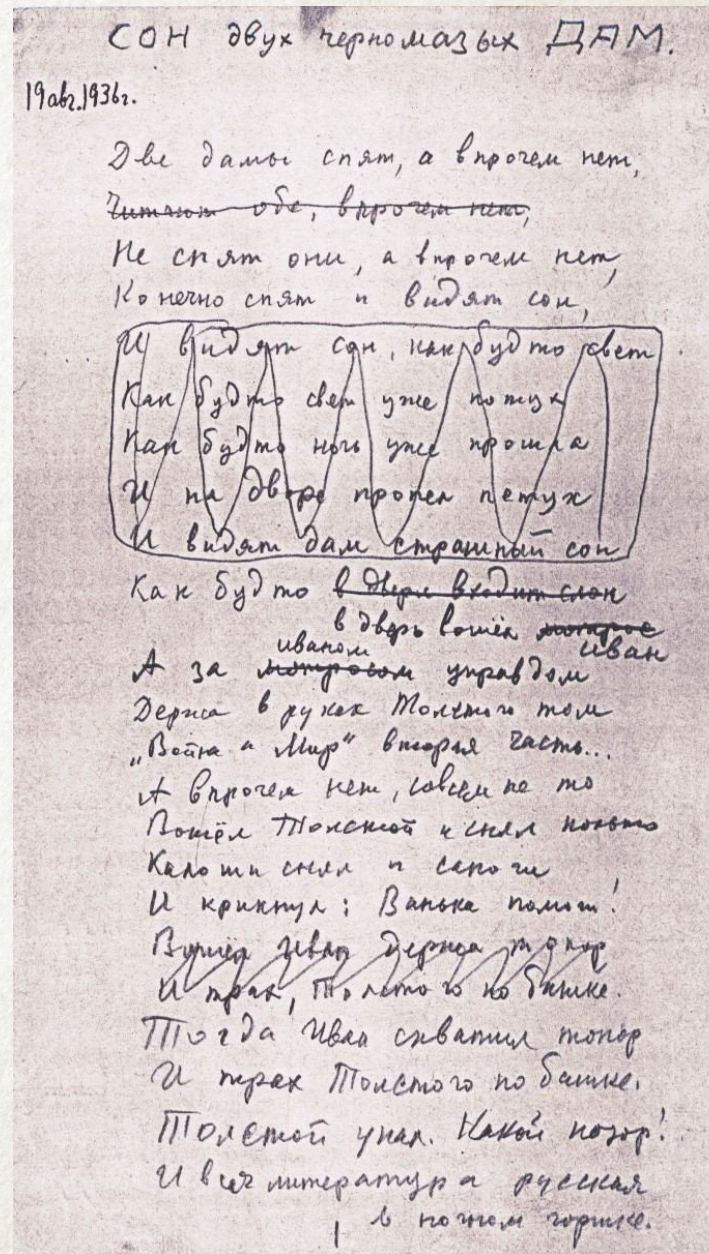 СОН двух черномазых ДАМ.
19 авг. 1936 г.
Две дамы спят, а впрочем нет,
Читают обе, впрочем нет,
Не спят они, а впрочем нет,
Конечно спят и видят сон,
И видят сон, как будто свет
Как будто свет уже потух
Как будто ночь уже прошла
И на дворе пропел петух
И видят дам страшный сон
Как будто в двери входит слон
в дверь вошёл матрос
иваном иван
А за матросом управдом
Держа в руках Толстого том
„Война и Мир“ вторая часть...
А впрочем нет, совсем не то
Вошёл Толстой и снял пальто
Калоши снял и сапоги
И крикнул: Ванька помоги!
Вошёл Иван держа топор
И трах, Толстого по башке.
Тогда Иван схватил топор
И трах Толстого по башке.
Толстой упал. Какой позор!
И вся литература русская
в ночном горшке.